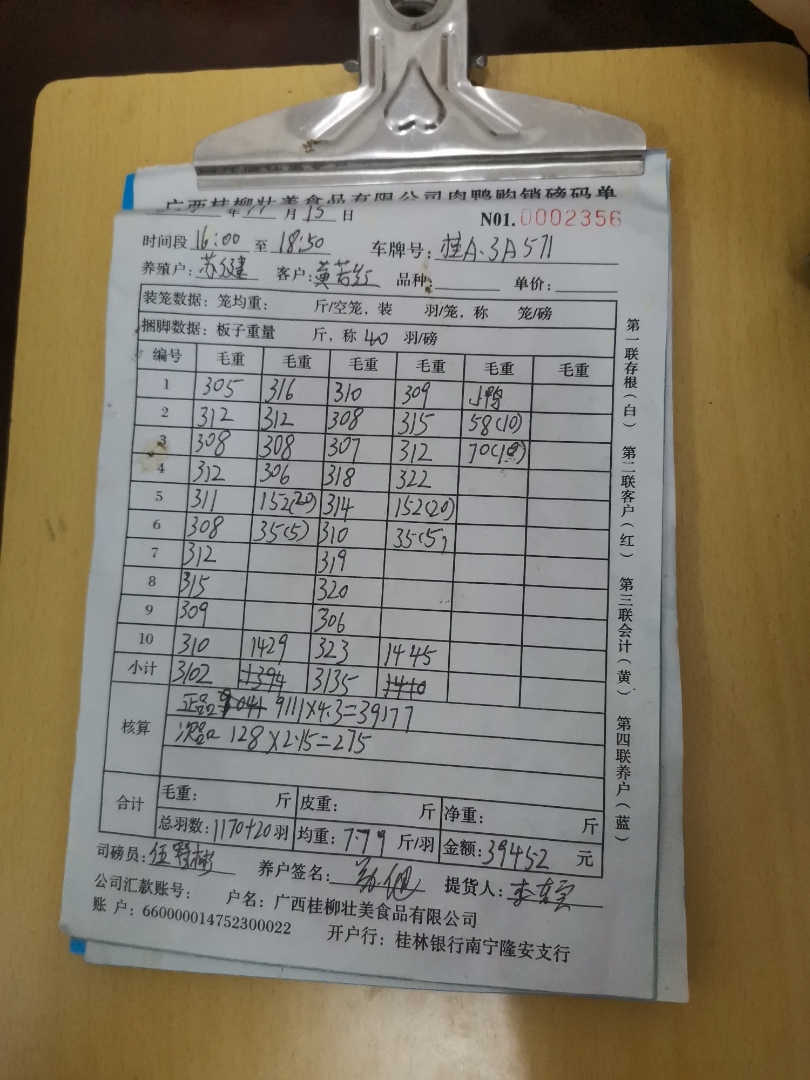 广西桂柳壮美食品有限公司肉鸭购销磅码单
年 11 月 15 日 N01. 0002356
时间段 16:00 至 18:50 车牌号: 桂A·3A571
养殖户: 苏健 客户: 黄若红 品种: 单价:
装笼数据: 笼均重: 斤/空笼, 装 羽/笼, 称 笼/磅
捆脚数据: 板子重量 斤, 称 40 羽/磅
编号 毛重 毛重 毛重 毛重 毛重 毛重
1 305 316 310 309 小鸭
2 312 312 308 315 58(10)
3 308 308 307 312 70(10)
4 312 306 318 322
5 311 152(20) 314 152(20)
6 308 35(5) 310 35(5)
7 312 319
8 315 320
9 309 306
10 310 1429 323 1445
小计 3102 1394 3135 1410
核算 正品 9041 9111×4.3=39177
次品 128×2.15=275
合计 毛重: 斤 皮重: 斤 净重: 斤
总羽数: 1170+20 羽 均重: 7.79 斤/羽 金额: 39452 元
司磅员: 伍 彬 养户签名: 提货人: 李
公司汇款账号: 户名: 广西桂柳壮美食品有限公司
账 户: 660000014752300022 开户行: 桂林银行南宁隆安支行
第一联存根(白) 第二联客户(红) 第三联会计(黄) 第四联养户(蓝)